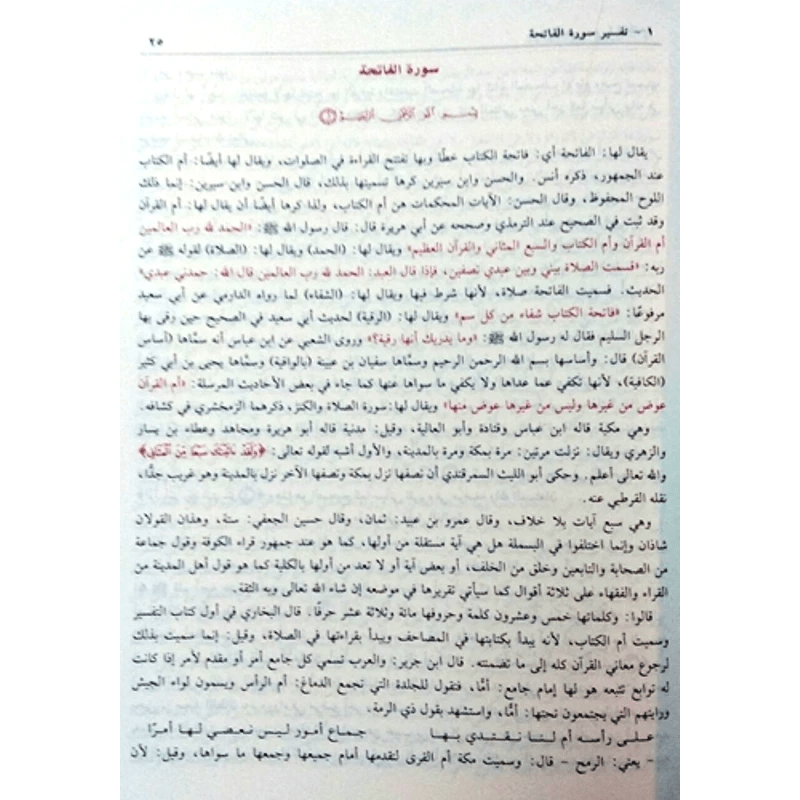 ١ - تفسير سورة الفاتحة
٢٥
سورة الفاتحة
بسم الله الرحمن الرحيم
يقال لها: الفاتحة أي: فاتحة الكتاب خطًا وبها تفتتح القراءة في الصلوات، ويقال لها أيضًا: أم الكتاب
عند الجمهور، ذكره أنس. والحسن وابن سيرين كرها تسميتها بذلك، قال الحسن وابن سيرين: إنما ذلك
اللوح المحفوظ، وقال الحسن: الآيات المحكمات هن أم الكتاب، ولذا كرها أيضًا أن يقال لها: أم القرآن
وقد ثبت في الصحيح عند الترمذي وصححه عن أبي هريرة قال: قال رسول الله ﷺ: «الحمد لله رب العالمين
أم القرآن وأم الكتاب والسبع المثاني والقرآن العظيم» ويقال لها: (الحمد) ويقال لها: (الصلاة) لقوله ﷺ عن
ربه: «قسمت الصلاة بيني وبين عبدي نصفين، فإذا قال العبد: الحمد لله رب العالمين قال الله: حمدني عبدي»
الحديث. فسميت الفاتحة صلاة، لأنها شرط فيها ويقال لها: (الشفاء) لما رواه الدارمي عن أبي سعيد
مرفوعًا: «فاتحة الكتاب شفاء من كل سم» ويقال لها: (الرقية) لحديث أبي سعيد في الصحيح حين رقى بها
الرجل السليم فقال له رسول الله ﷺ: «وما يدريك أنها رقية؟» وروى الشعبي عن ابن عباس أنه سمّاها (أساس
القرآن) قال: وأساسها بسم الله الرحمن الرحيم وسمّاها سفيان بن عيينة (بالواقية) وسمّاها يحيى بن أبي كثير
(الكافية)، لأنها تكفي عما عداها ولا يكفي ما سواها عنها كما جاء في بعض الأحاديث المرسلة: «أم القرآن
عوض من غيرها وليس من غيرها عوض منها» ويقال لها: سورة الصلاة والكنز، ذكرهما الزمخشري في كشافه.
وهي مكية قاله ابن عباس وقتادة وأبو العالية، وقيل: مدنية قاله أبو هريرة ومجاهد وعطاء بن يسار
والزهري ويقال: نزلت مرتين: مرة بمكة ومرة بالمدينة، والأول أشبه لقوله تعالى: ﴿وَلَقَدْ ءَاتَيْنَاكَ سَبْعًا مِنَ الْمَثَانِي﴾
والله تعالى أعلم. وحكى أبو الليث السمرقندي أن نصفها نزل بمكة ونصفها الآخر نزل بالمدينة وهو غريب جدًّا،
نقله القرطبي عنه.
وهي سبع آيات بلا خلاف، وقال عمرو بن عبيد: ثمان، وقال حسين الجعفي: ستة، وهذان القولان
شاذان وإنما اختلفوا في البسملة هل هي آية مستقلة من أولها، كما هو عند جمهور قراء الكوفة وقول جماعة
من الصحابة والتابعين وخلق من الخلف، أو بعض آية أو لا تعد من أولها بالكلية كما هو قول أهل المدينة من
القراء والفقهاء على ثلاثة أقوال كما سيأتي تقريرها في موضعه إن شاء الله تعالى وبه الثقة.
قالوا: وكلماتها خمس وعشرون كلمة وحروفها مائة وثلاثة عشر حرفًا. قال البخاري في أول كتاب التفسير
وسميت أم الكتاب، لأنه يبدأ بكتابتها في المصاحف ويبدأ بقراءتها في الصلاة، وقيل: إنما سميت بذلك
لرجوع معاني القرآن كله إلى ما تضمنته. قال ابن جرير: والعرب تسمي كل جامع أمر أو مقدم لأمر إذا كانت
له توابع تتبعه هو لها إمام جامع: أمًّا، فتقول للجلدة التي تجمع الدماغ: أم الرأس ويسمون لواء الجيش
ورايتهم التي يجتمعون تحتها: أمًّا، واستشهد بقول ذي الرمة.
على رأسه أم لنا نقتدي بها جماع أمور ليس نعصي لها أمرًا
- يعني: الرمح - قال: وسميت مكة أم القرى لتقدمها أمام جميعها وجمعها ما سواها، وقيل: لأن